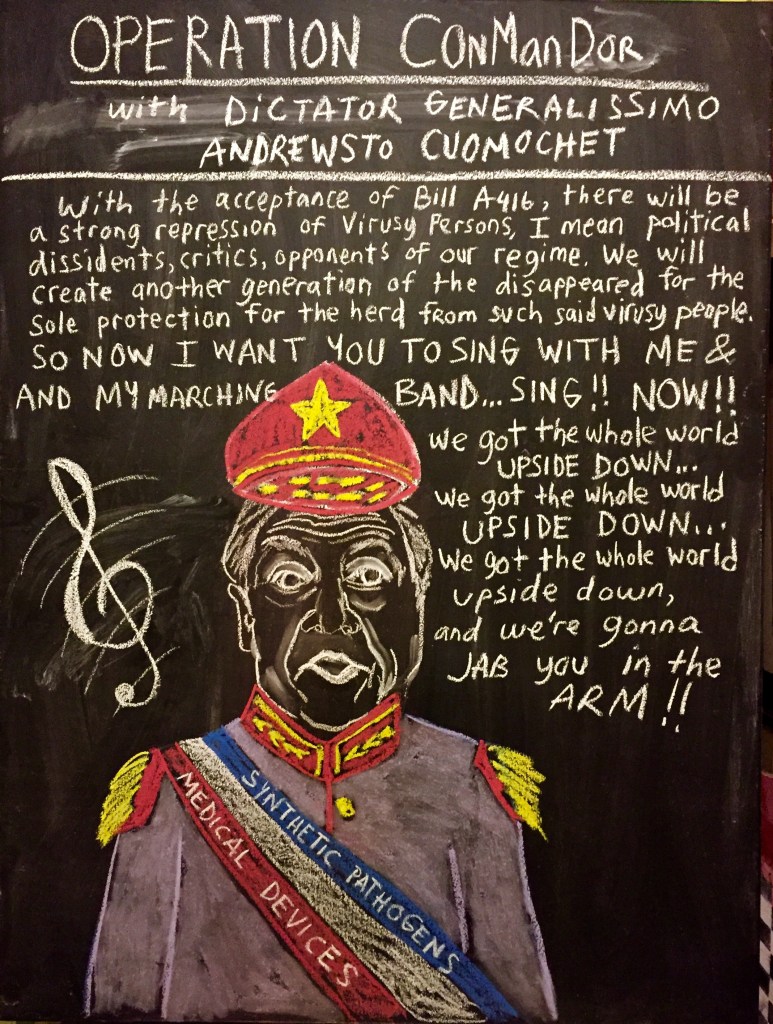 OPERATION ConManDor
with DiCTATOR GENERALISSIMO
ANDREWSTO CUOMOCHET
With the acceptance of Bill A416, there will be
a strong repression of Virusy Persons, I mean political
dissidents, critics, opponents of our regime. We will
create another generation of the disappeared for the
Sole protection for the herd from such said virusy people.
SO NOW I WANT YOU TO SING WITH ME &
AND MY MARCHING BAND... SING!! NOW!!
We got the whole world
UPSIDE DOWN...
We got the whole world
UPSIDE DOWN...
We got the whole world
upside down,
and we're gonna
JAB you in the
ARM!!
SYNTHETIC PATHOGENS
MEDICAL DEVICES